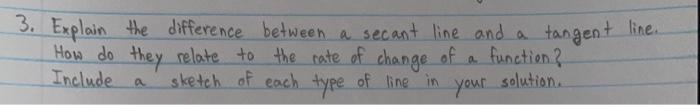 3. Explain the difference between a secant line and a tangent line.
How do they relate to the rate of change of a function?
Include a sketch of each type of line in your solution.